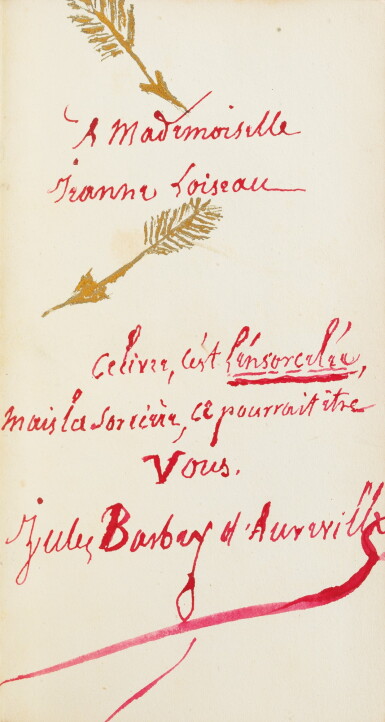 A Mademoiselle
Jeanne Loiseau
Ce livre, c'est l'énsorcelée,
mais la sorcière, ce pourrait être
Vous.
Jules Barbey d'Aurevilly